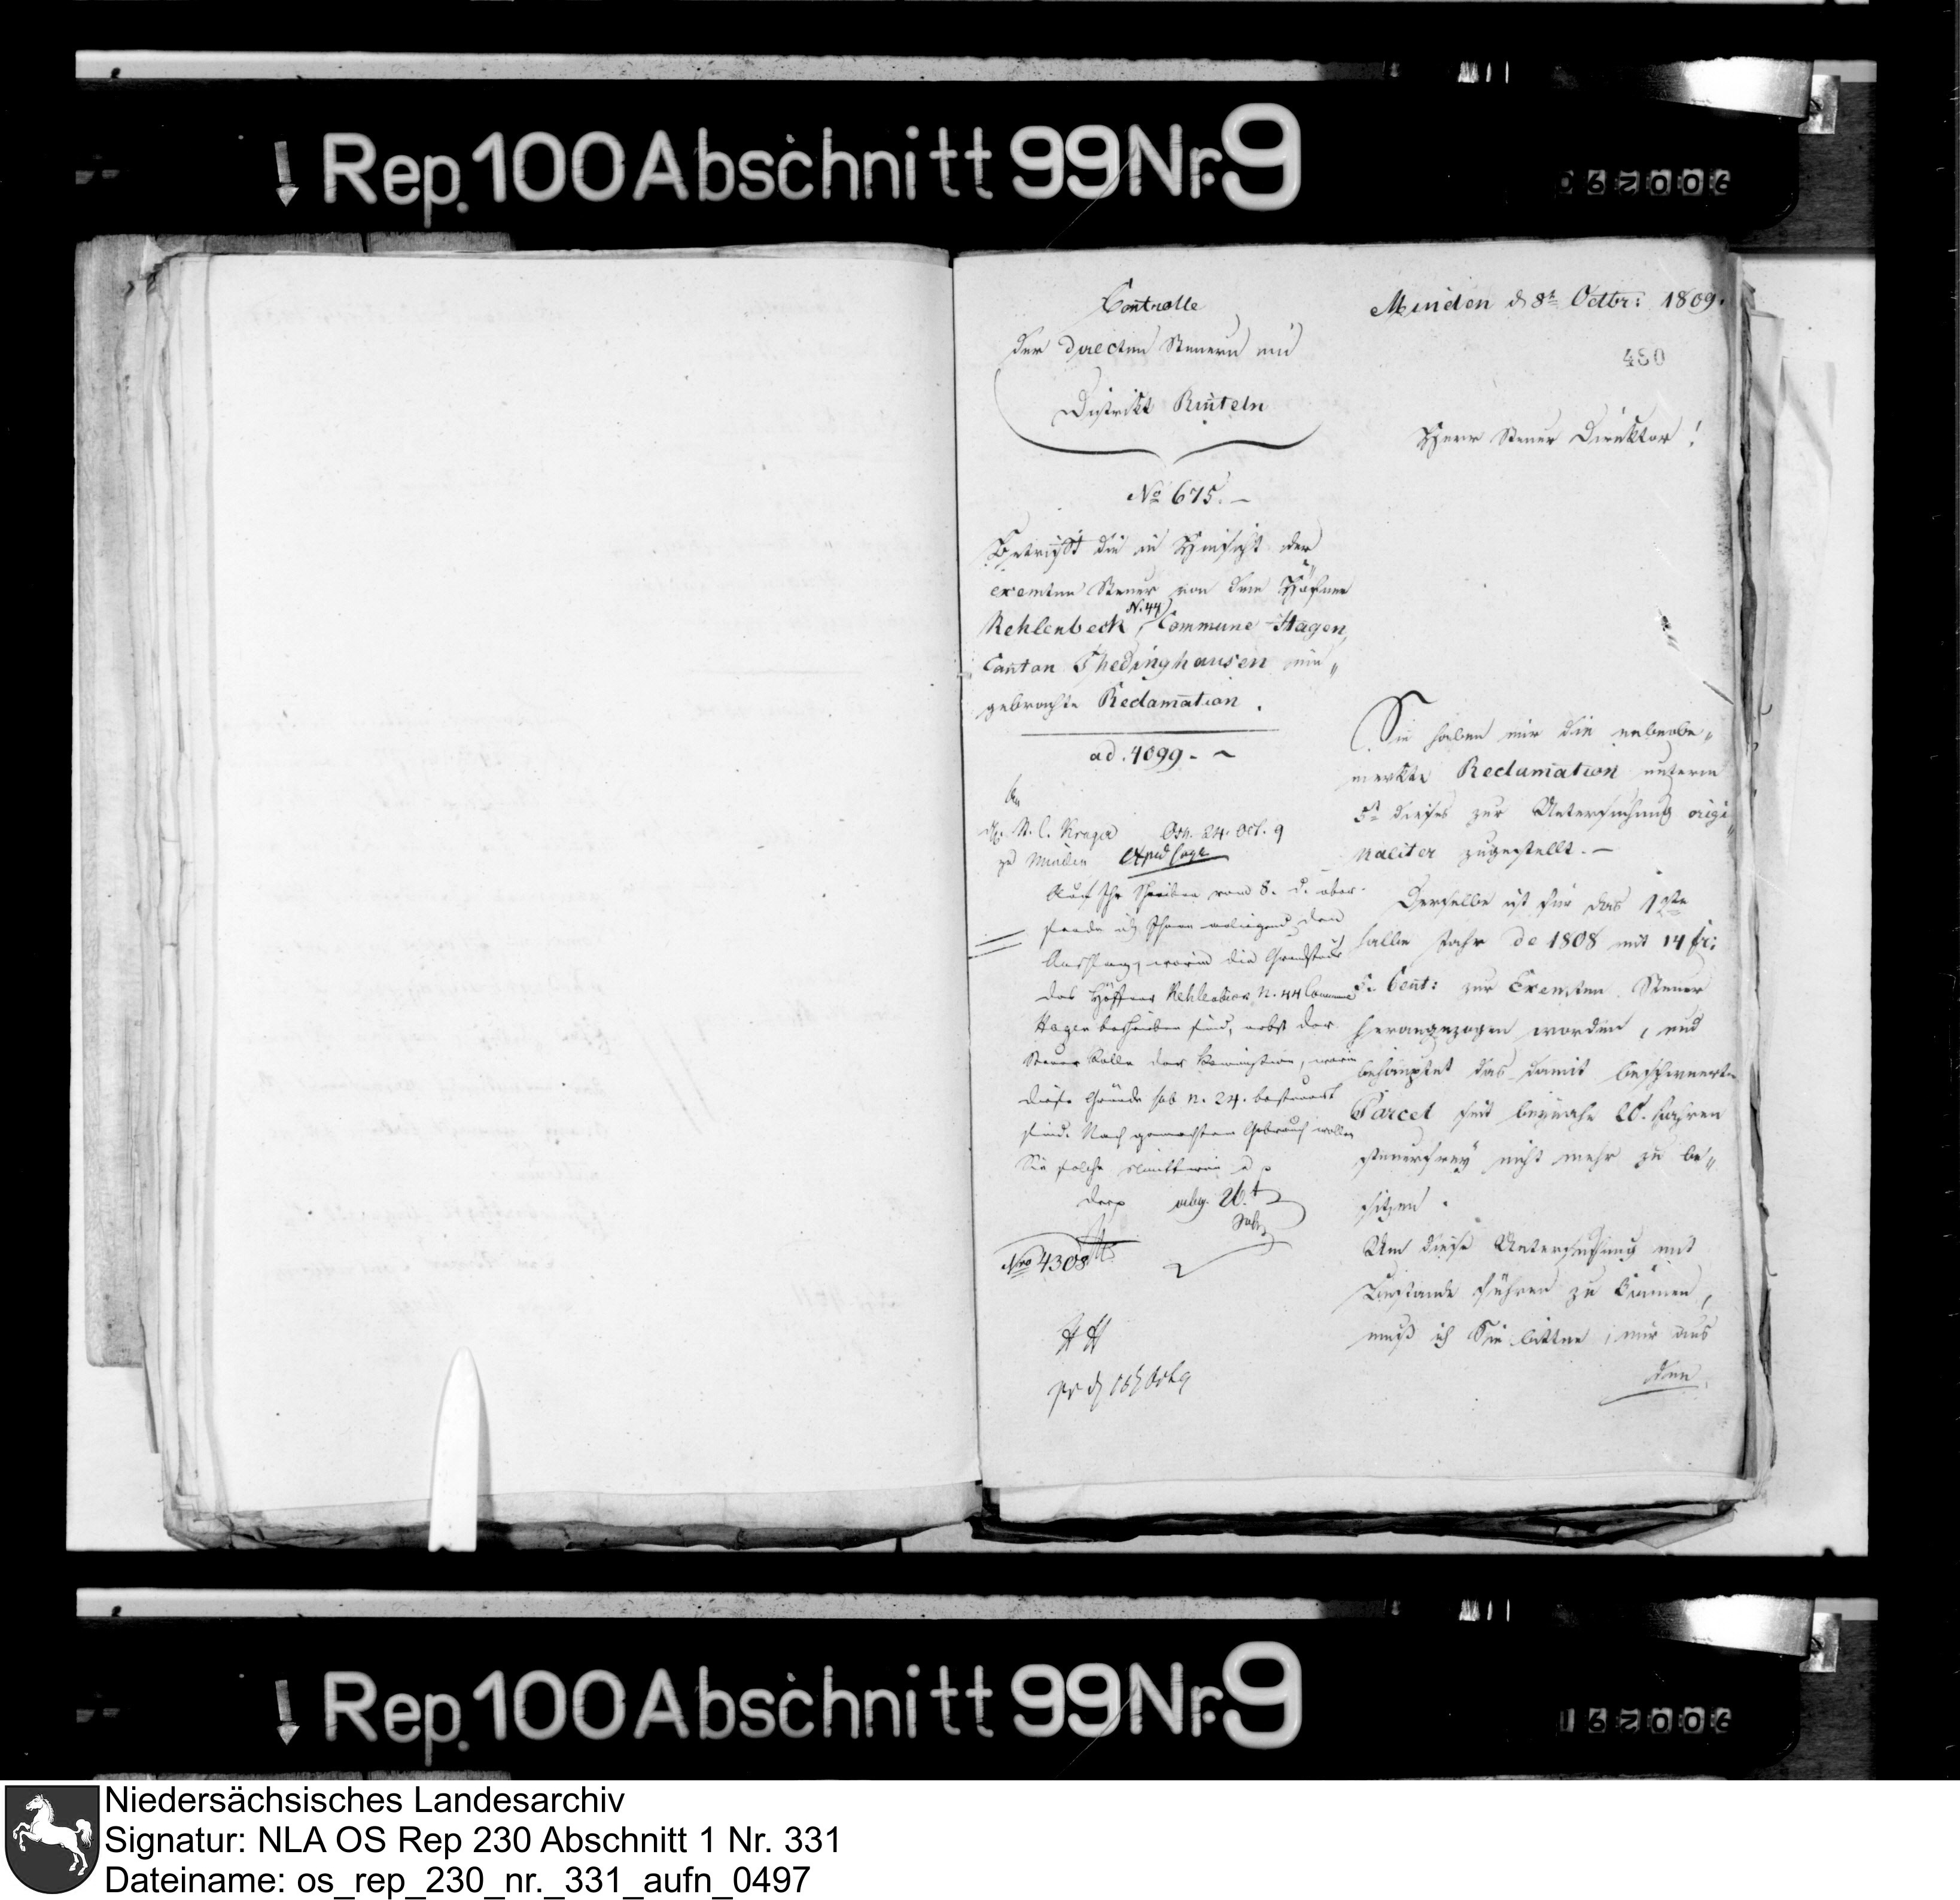 Rep. 100 Abschnitt 99 Nr. 9
Controlle
der directen Steuern im
Distrikt Rinteln
No 675. –
Betrifft die in Hinsicht der
exemten Steuer von dem Höfner
Rehlenbeck, N. 44 Commune Hagen,
Canton Thedinghausen ein„
gebrachte Reclamation.
ad. 4099. –
An
St. C. Kruger Osn. 24. Oct. 9
zu Minden
Auf Ihr Schreiben vom 8. d. über„
sende ich Ihnen anliegend den
Anschlag, worin die Grundstücke
des Höffners Rehlenbeck N. 44 Commune
Hagen beschrieben sind, nebst der
Steuer Rolle der, worin
diese Gründe sub n. 24. besteuert
sind. Nach gemachtem Gebrauch wollen
Sie solche
abg. 26.
Nro 4308
Minden d 8t Octbr: 1809.
480
Herr Steuer Direktor!
Sie haben mir die nebenbe„
merkte Reclamation unterm
5t dieses zur Untersuchung origi„
naliter zugestellt. –
Derselbe ist für das 1ste
halbe Jahr de 1808 mit 14 fr:
Cent: zur Exemten Steuer
herangezogen worden, und
behauptet das damit beschwerte
Parcel seit beynahe 20. Jahren
steuerfrey nicht mehr zu be„
sitzen.
Um diese Untersuchung mit
Bestande führen zu können,
muß ich Sie bitten, mir aus
den
Rep. 100 Abschnitt 99 Nr. 9
Niedersächsisches Landesarchiv
Signatur: NLA OS Rep 230 Abschnitt 1 Nr. 331
Dateiname: os_rep_230_nr._331_aufn_0497